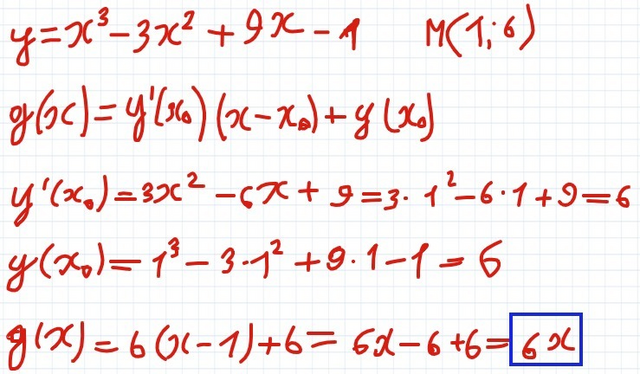 y = x³ - 3x² + 9x - 1 M(1; 6)
g(x) = y'(x₀)(x - x₀) + y(x₀)
y'(x₀) = 3x² - 6x + 9 = 3 · 1² - 6 · 1 + 9 = 6
y(x₀) = 1³ - 3 · 1² + 9 · 1 - 1 = 6
g(x) = 6(x - 1) + 6 = 6x - 6 + 6 = 6x